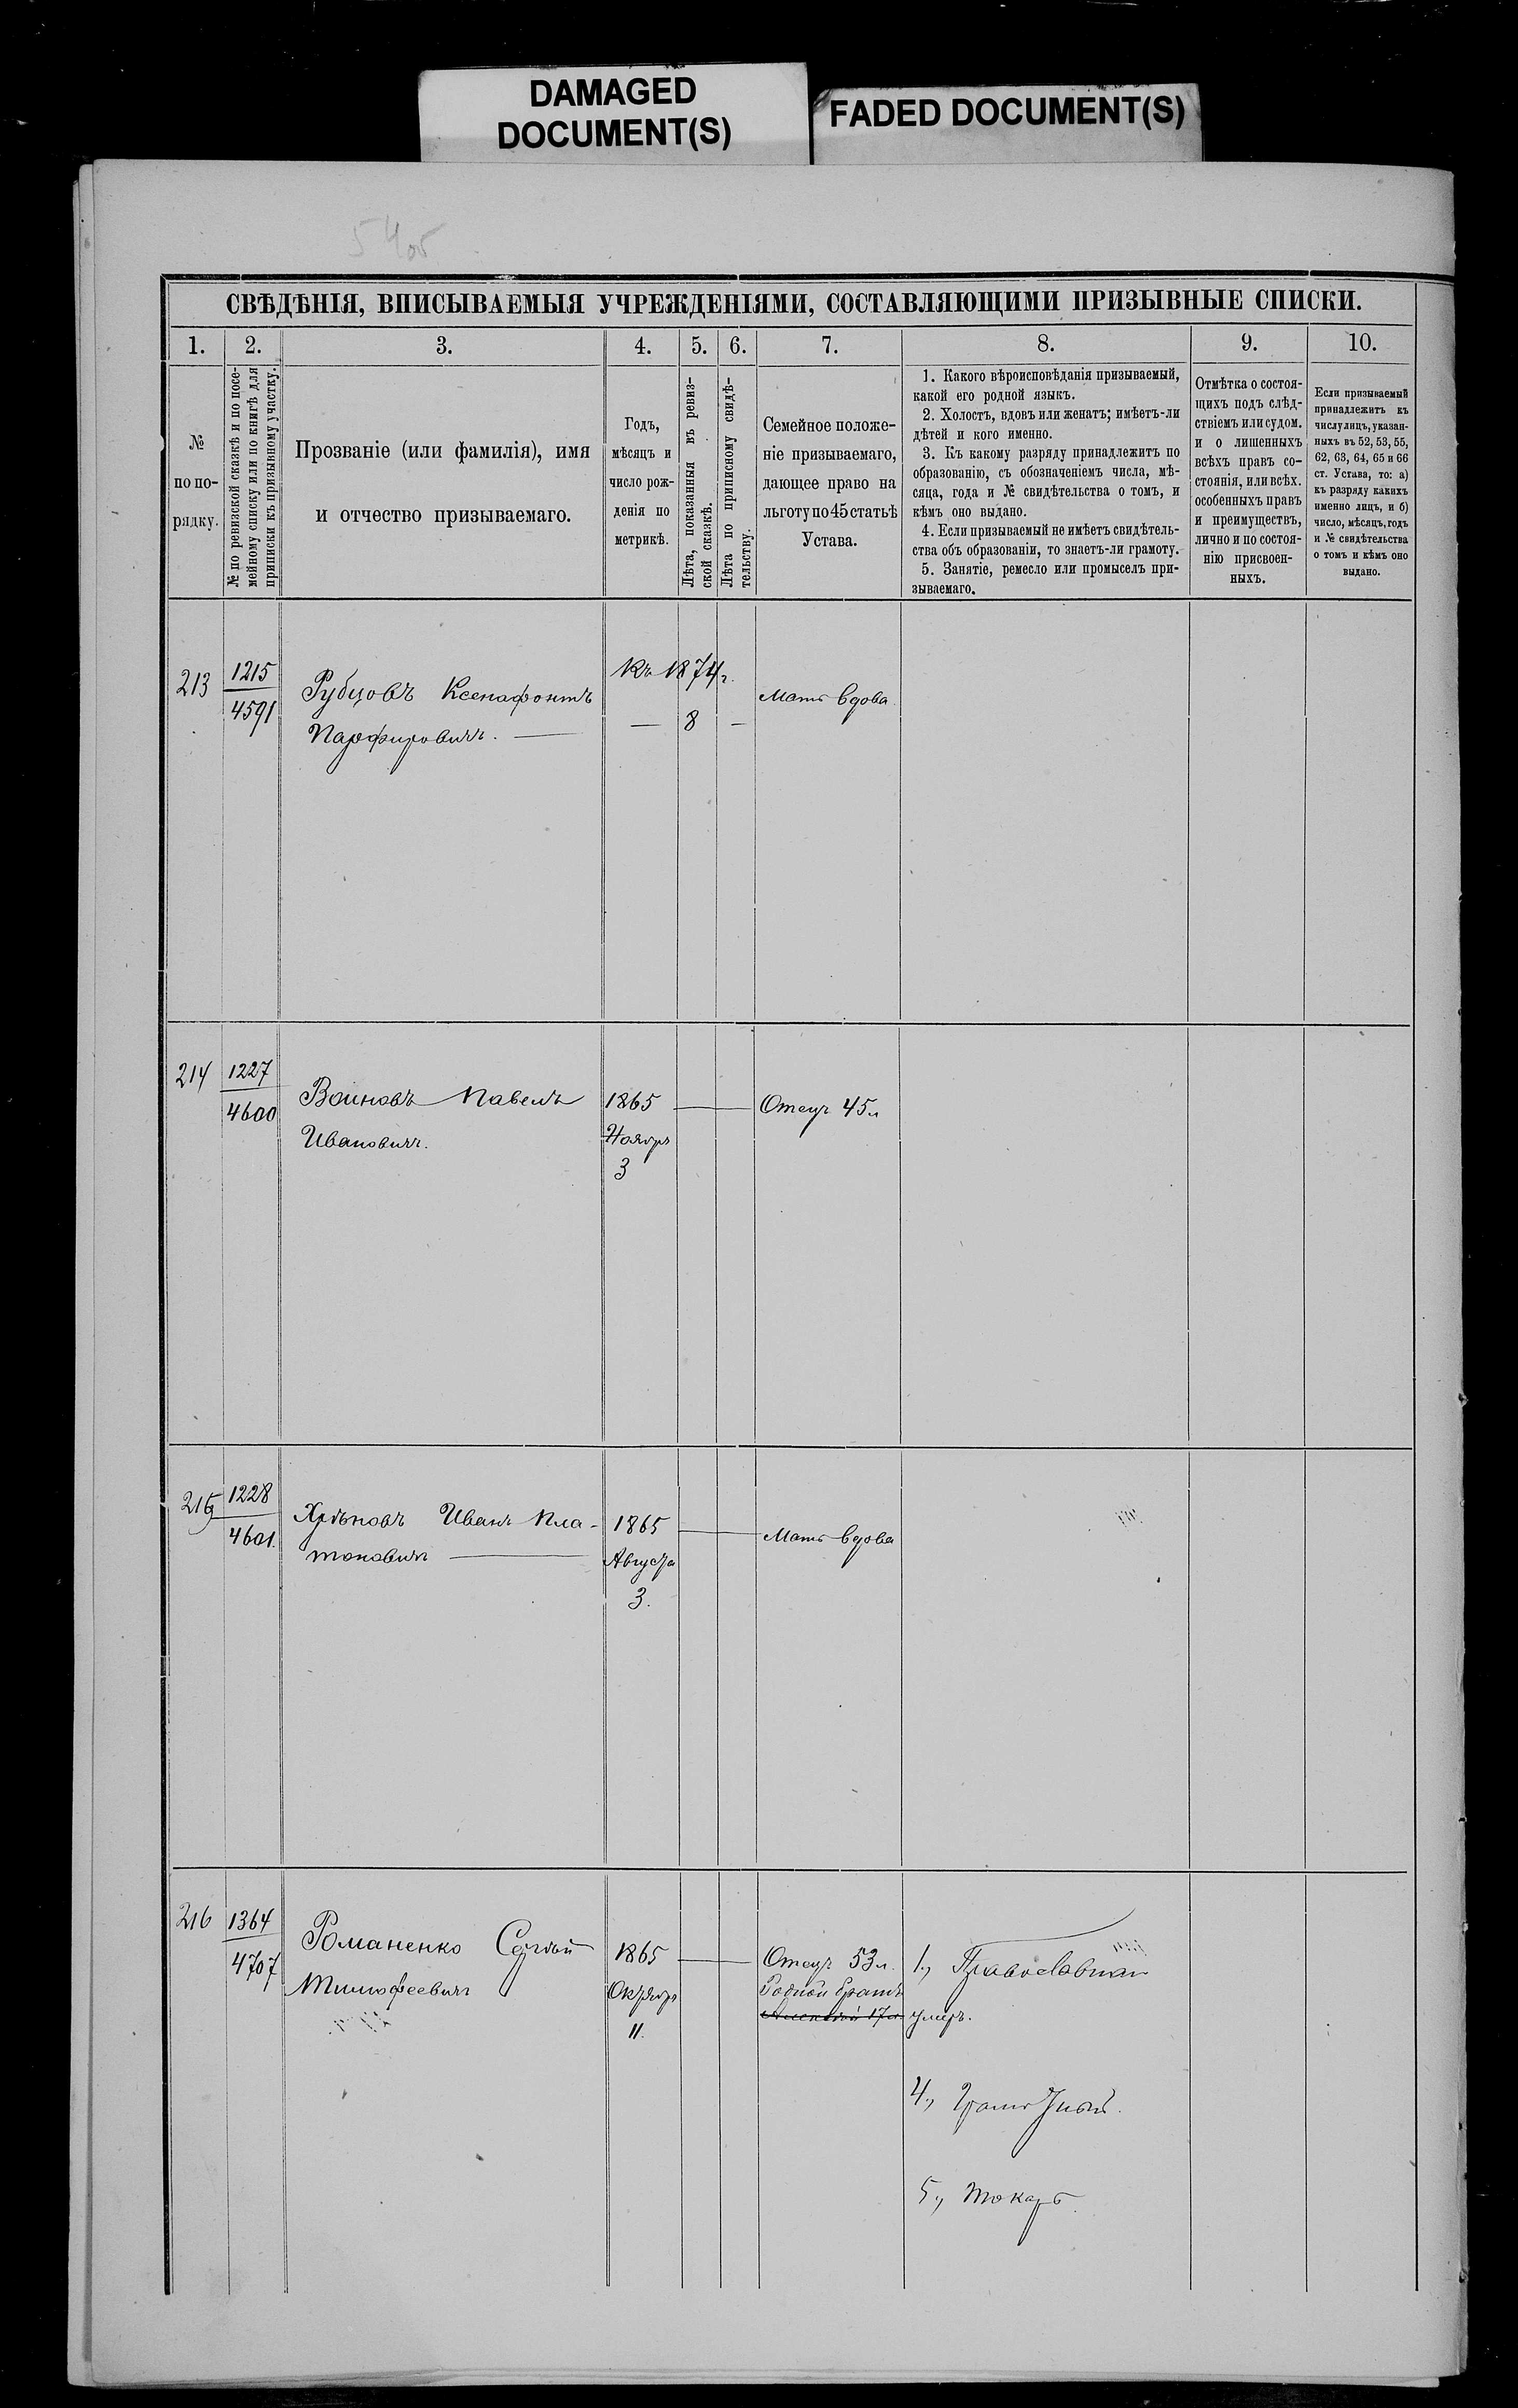 DAMAGED
DOCUMENT(S)
FADED DOCUMENT(S)
54об
СВѢДѢНІЯ, ВПИСЫВАЕМЫЯ УЧРЕЖДЕНІЯМИ, СОСТАВЛЯЮЩИМИ ПРИЗЫВНЫЕ СПИСКИ.
1. 2. 3. 4. 5. 6. 7. 8. 9. 10.
№
по по-
рядку.
№ по ревизской сказкѣ и по посе-
мейному списку или по книгѣ для
приписки къ призывному участку.
Прозваніе (или фамилія), имя
и отчество призываемаго.
Годъ,
мѣсяцъ и
число рож-
денія по
метрикѣ.
Лѣта, показанныя въ ревиз-
ской сказкѣ.
Лѣта по приписному свидѣ-
тельству.
Семейное положе-
ніе призываемаго,
дающее право на
льготу по 45 статьѣ
Устава.
1. Какого вѣроисповѣданія призываемый,
какой его родной языкъ.
2. Холостъ, вдовъ или женатъ; имѣетъ-ли
дѣтей и кого именно.
3. Къ какому разряду принадлежитъ по
образованію, съ обозначеніемъ числа, мѣ-
сяца, года и № свидѣтельства о томъ, и
кѣмъ оно выдано.
4. Если призываемый не имѣетъ свидѣтель-
ства объ образованіи, то знаетъ-ли грамоту.
5. Занятіе, ремесло или промыселъ при-
зываемаго.
Отмѣтка о состоя-
щихъ подъ слѣд-
ствіемъ или судом.
и о лишенныхъ
всѣхъ правъ со-
стоянія, или всѣх.
особенныхъ правъ
и преимуществъ,
лично и по состоя-
нію присвоен-
ныхъ.
Если призываемый
принадлежитъ къ
числу лицъ, указан-
ныхъ въ 52, 53, 55,
62, 63, 64, 65 и 66
ст. Устава, то: а)
къ разряду какихъ
именно лицъ, и б)
число, мѣсяцъ, годъ
и № свидѣтельства
о томъ и кѣмъ оно
выдано.
213 1215
4591
Рубцовъ Ксенофонтъ
Парфировичъ. —
Къ 1874 г.
— 8 —
Мать вдова
214 1227
4600
Воиновъ Павелъ
Ивановичъ.
1865
Ноябрь
3
Отецъ 45 л
215 1228
4601.
Хрѣновъ Иванъ Пла-
тоновичъ —
1865
Августа
3.
Мать вдова
216 1364
4707
Романенко Сергѣй
Тимофеевичъ
1865
Октябрь
11.
Отецъ 53 л.
Родной братъ
Алексѣй 17 л умеръ.
1., Православнаго
4., Грамотный.
5., Токарь.